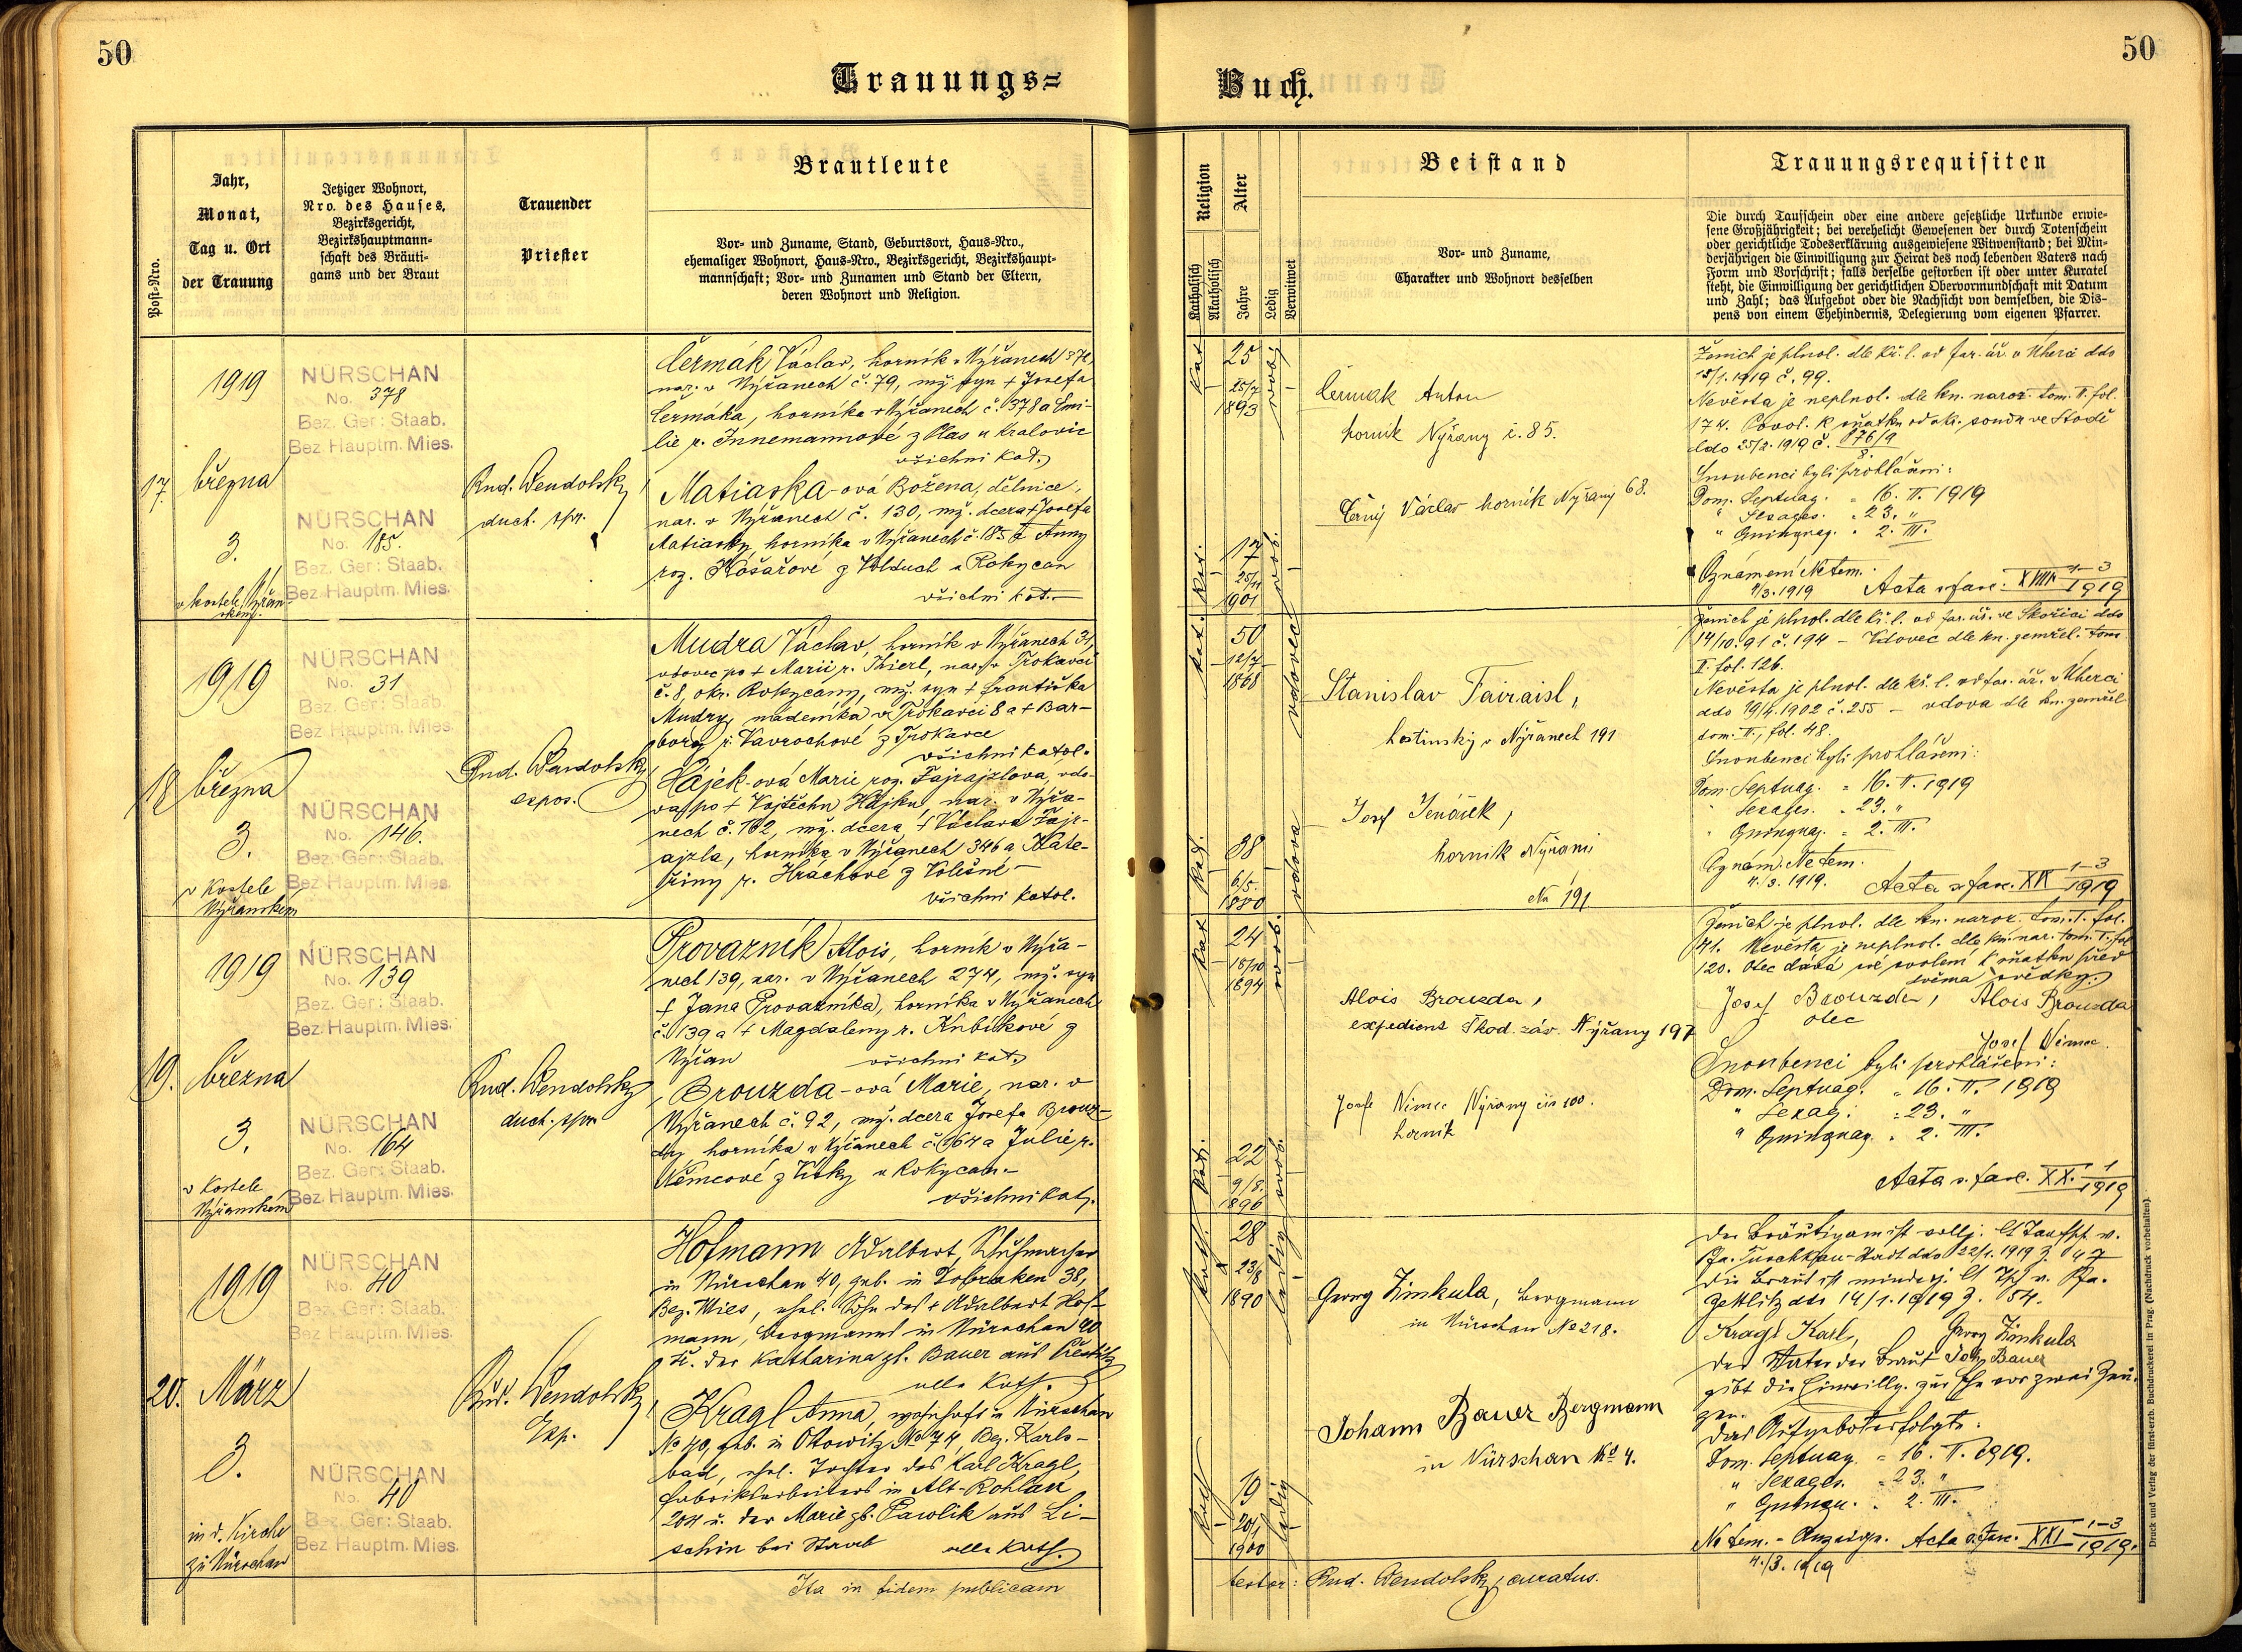 50
50
Trauungs=
Buch.
Post=Nro.
Jahr,
Monat,
Tag u. Ort
der Trauung
Jetziger Wohnort,
Nro. des Hauses,
Bezirksgericht,
Bezirkshauptmann=
schaft des Bräuti=
gams und der Braut
Trauender
Priester
Brautleute
Vor= und Zuname, Stand, Geburtsort, Haus=Nro.,
ehemaliger Wohnort, Haus=Nro., Bezirksgericht, Bezirkshaupt=
mannschaft; Vor= und Zunamen und Stand der Eltern,
deren Wohnort und Religion.
Religion
Katholisch
Akatholisch
Alter
Jahre
Ledig
Verwitwet
Beistand
Vor= und Zuname,
Charakter und Wohnort desselben
Trauungsrequisiten
Die durch Taufschein oder eine andere gesetzliche Urkunde erwie=
sene Großjährigkeit; bei verehelicht Gewesenen der durch Totenschein
oder gerichtliche Todeserklärung ausgewiesene Witwenstand; bei Min=
derjährigen die Einwilligung zur Heirat des noch lebenden Vaters nach
Form und Vorschrift; falls derselbe gestorben ist oder unter Kuratel
steht, die Einwilligung der gerichtlichen Obervormundschaft mit Datum
und Zahl; das Aufgebot oder die Nachsicht von demselben, die Dis=
pens von einem Ehehindernis, Delegierung vom eigenen Pfarrer.
17.
1919
března
3.
v kostele Nýřan-
ském
NÜRSCHAN
No. 378
Bez. Ger: Staab.
Bez Hauptm. Mies.
NÜRSCHAN
No. 185.
Bez. Ger: Staab.
Bez Hauptm. Mies.
Rud. Wendolsky
duch. spr.
Čermák Václav, horník v Nýřanech 378,
nar. v Nýřanech č. 79, mž. syn + Josefa
Čermáka, horníka v Nýřanech č. 378 a Emi-
lie r. Innemannové z Plas u Kralovic
všichni kat.
Matiaska-ová Božena, dělnice,
nar. v Nýřanech č. 130, mž. dcera + Josefa
Matiasky, horníka v Nýřanech č. 185 a Anny
roz. Košařové z Volduch u Rokycan
všichni kat.
kat.
25
25/7
1893
svob.
kat.
17
1901
svob.
Čermák Anton
horník Nýřany č. 85.
Černý Václav horník Nýřany 68.
Ženich je plnol. dle kř. l. od far. úř. v Uherci ddo
15/1. 1919 č. 99.
Nevěsta je neplnol. dle kn. naroz. tom. II. fol.
174. Povol. k sňatku od okr. soudu ve Stodě
ddo 25/2. 1919 č.
Snoubenci byli prohlášeni:
Dom. Septuag. = 16. II. 1919
" Sexages. = 23. "
" Quinquag. = 2. III.
Oznámení Ne tem.
4/3. 1919 Acta s. fasc. XVIII 1-3/1919
18
1919
března
3.
v kostele
Nýřanském
NÜRSCHAN
No. 31
Bez. Ger: Staab.
Bez Hauptm. Mies.
NÜRSCHAN
No. 146.
Bez. Ger: Staab.
Bez Hauptm. Mies.
Rud. Wendolsky
expos.
Mudra Václav, horník v Nýřanech 31,
vdovec po + Marii r. Thierl, nar. v Trokavci
č. 8, okr. Rokycany, mž. syn + Františka
Mudry, nádeníka v Trokavci 8 a + Bar-
bory r. Vavrochové z Trokavce
všichni katol.
Hájek-ová Marie roz. Fajrajzlova, vdo-
va po + Vojtěchu Hájku, nar. v Nýřa-
nech č. 162, mž. dcera + Václava Fajr-
ajzla, horníka v Nýřanech 346 a Kate-
řiny r. Hrachové z Volešné
všichni katol.
kat.
50
12/7
1868
vdovec
kat.
38
6/5.
1880
vdova
Stanislav Fairaisl,
hostinský v Nýřanech 191
Josef Jenáček,
horník Nýřani
No 191
Ženich je plnol. dle kř. l. od far. úř. ve Skořici ddo
14/10. 91 č. 194 - Vdovec dle kn. zemřel. tom.
II. fol. 126.
Nevěsta je plnol. dle kř. l. od far. úř. v Uherci
ddo 19/4. 1902 č. 255 - vdova dle kn. zemřel.
tom. II., fol. 48.
Snoubenci byli prohlášeni:
Dom. Septuag. = 16. II. 1919
" Sexages. = 23. "
" Quinquag. = 2. III.
Oznám. Ne tem.
4./3. 1919. Acta s. fasc. XIX 1-3/1919
19.
1919
března
3.
v kostele
Nýřanském
NÜRSCHAN
No. 139
Bez. Ger: Staab.
Bez Hauptm. Mies.
NÜRSCHAN
No. 164
Bez. Ger: Staab.
Bez. Hauptm. Mies.
Rud. Wendolsky
duch. spr.
Provazník Alois, horník v Nýřa-
nech 139, nar. v Nýřanech 274, mž. syn
+ Jana Provazníka, horníka v Nýřanech
č. 139 a + Magdaleny r. Kubíkové z
Nýřan všichni kat.
Brouzda-ová Marie, nar. v
Nýřanech č. 92, mž. dcera Josefa Brouz-
dy, horníka v Nýřanech č. 164 a Julie r.
Němcové z Vísky u Rokycan.-
všichni kat.
kat.
24
15/10
1894
svob.
kat.
22
9/8.
1896
svob.
Alois Brouzda,
expedient Škod. záv. Nýřany 197
Josef Němec Nýřany čís 100.
horník
Ženich je plnol. dle kn. naroz. tom. I. fol.
141. Nevěsta je neplnol. dle kn. nar. tom. I. fol
120. Otec dává své svolení k sňatku před
svěma svědky.
Josef Brouzda, Alois Brouzda
otec
Josef Němec.
Snoubenci byli prohlášeni:
Dom. Septuag. = 16. II. 1919
" Sexag. = 23. "
" Quinquag. = 2. III.
Acta s. fasc. XX. 1/1919
20.
1919
März
3.
in d. Kirche
zu Nürschan
NÜRSCHAN
No. 40
Bez. Ger: Staab.
Bez Hauptm. Mies.
NÜRSCHAN
No. 40
Bez. Ger: Staab.
Bez Hauptm. Mies.
Rud. Wendolsky
Exp.
Hofmann Adalbert, Schuhmacher
in Nürschan 40, geb. in Dobraken 38,
Bez. Mies, ehel. Sohn des + Adalbert Hof-
mann, Bergmanns in Nürschan 40
u. der Katharina gb. Bauer aus
alle kath.
Kragl Anna, wohnhaft in Nürschan
No 40, geb. in Ottowitz No 74, Bez. Karls-
bad, ehel. Tochter des Karl Kragl,
Fabriksarbeiters in Alt-Rohlau
204 u. der Marie gb. Pawlik aus Li-
schin bei Staab alle kath.
kath.
28
23/8
1890
ledig
kath.
19
20/1
1900
ledig
Georg Zimkula, Bergmann
in Nürschan No 218.
Johann Bauer Bergmann
in Nürschan No 4.
Der Bräutigam ist vollj. lt Taufsch. v.
Pfa. Tuschkau-Stadt ddo 22/1. 1919 Z. 47
Die Braut ist minderj. lt Tsch v. Pfa.
Zettlitz ddo 14/1. 1919 Z. 54.
Kragl Karl, Georg Zimkula
Der Vater der Braut Joh. Bauer
gibt die Einwillg. zur Ehe vor zwei Zeu-
gen.
Das Aufgebot erfolgte:
Dom. Septuag. = 16. II. 1919.
" Sexages. = 23. "
" Quinqu. = 2. III.
Ne tem. - Anzeige. Acta s. fasc. XXI 1-3/1919.
4./3. 1919
Ita in fidem publicam
testor: Rud. Wendolsky, curatus.
Druck und Verlag der fürst=erzb. Buchdruckerei in Prag. (Nachdruck vorbehalten)